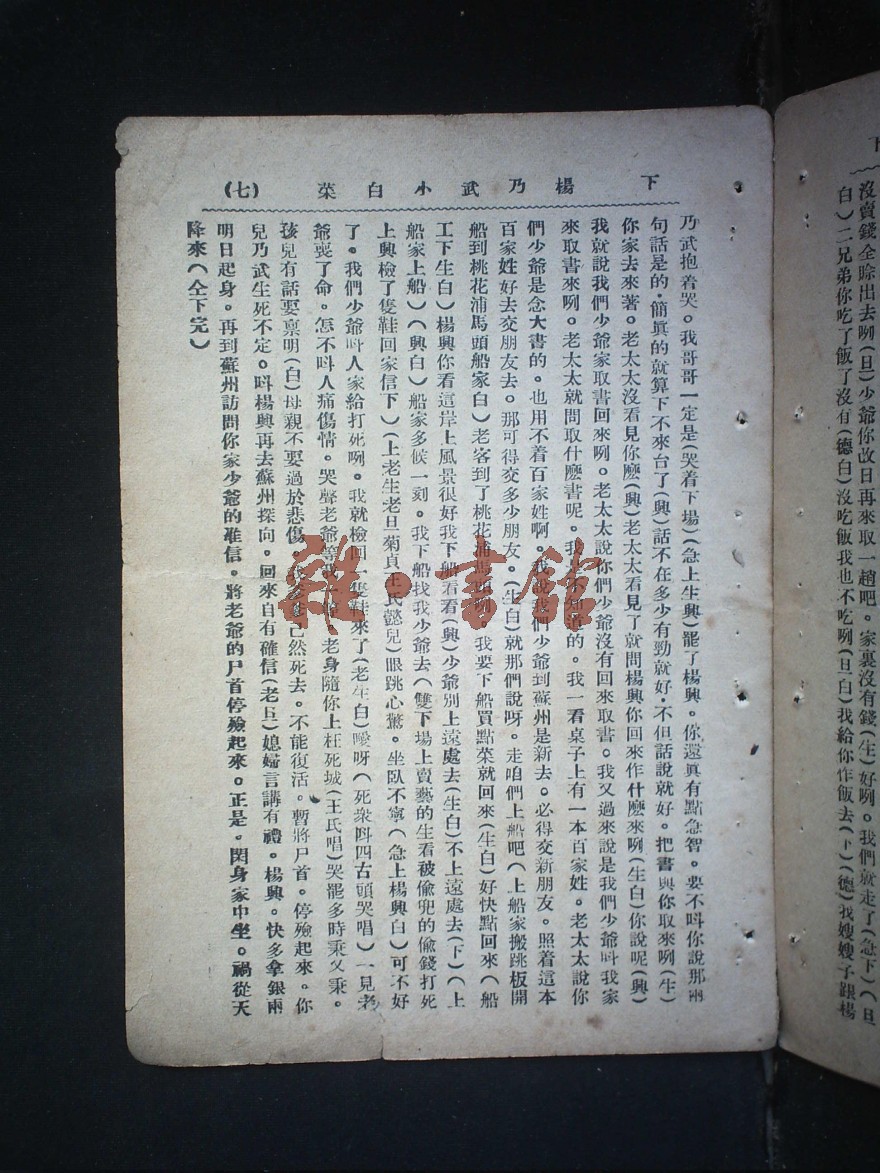 下　楊乃武小白菜　(七)
乃武抱着哭。我哥哥一定是(哭着下場)(急上生興)罷了楊興。你還眞有點急智。要不叫你說那兩
句話是的。簡眞的就算下不來台了(興)話不在多少有勁就好。不但話說就好。把書與你取來咧(生)
你家去來著。老太太沒看見你麽(興)老太太看見了就問楊興你回來作什麽來咧(生白)你說呢(興)
我就說我們少爺家取書回來咧。老太太說你們少爺沒有回來取書。我又過來說是我們少爺呌我家
來取書來咧。老太太就問取什麽書呢。我不知道的。我一看桌子上有一本百家姓。老太太說你
們少爺是念大書的。也用不着百家姓啊。我說我們少爺到蘇州是新去。必得交新朋友。照着這本
百家姓好去交朋友去。那可得交多少朋友。(生白)就那們說呀。走咱們上船吧(上船家搬跳板開
船到桃花浦馬頭船家白)老客到了桃花浦馬頭咧。我要下船買點菜就回來(生白)好快點回來(船
工下生白)楊興你看這岸上風景很好我下船看看(興)少爺別上遠處去(生白)不上遠處去(下)(上
船家上船)(興白)船家多候一刻。我下船找我少爺去(雙下場上賣藝的生看被偷兜的偷錢打死
上興檢了隻鞋回家信下)(上老生老旦菊貞王氏懿兒)眼跳心驚。坐臥不寧(急上楊興白)可不好
了。我們少爺呌人家給打死咧。我就檢回一隻鞋來了(老生白)噯呀(死衆呌四古頭哭唱)一見老
爺喪了命。怎不呌人痛傷情。哭聲老爺等我。老身隨你上枉死城(王氏唱)哭罷多時秉又秉。
孩兒有話要禀明(白)母親不要過於悲傷。已然死去。不能復活。暫將尸首。停殮起來。你
兒乃武生死不定。呌楊興再去蘇州探向。回來自有確信(老旦)媳婦言講有禮。楊興。快多拿銀兩
明日起身。再到蘇州訪問你家少爺的准信。將老爺的尸首停殮起來。正是。閑身家中坐。禍從天
降來(仝下完)
下
沒賣錢全賒出去咧(旦)少爺你改日再來取一趟吧。家裏沒有錢(生)好咧。我們就走了(急下)(旦
白)二兄弟你吃了飯了沒有(德白)沒吃飯我也不吃咧(旦白)我給你作飯去(下)(德)我嫂嫂子跟楊
雜·書館